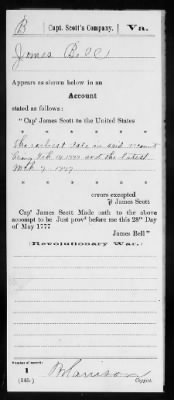 B | Capt. Scott's Company, | Va.
James Bell
Appears as shown below in an
Account
stated as follows:
"Cap' James Scott to the United States
The earliest date in said account
being Feb. 14, 1777 and the latest
Mch 7 1777
errors excepted
℘ James Scott
Cap' James Scott Made oath to the above
accompt to be Just prov'd before me this 28th Day
of May 1777
James Bell"
(Revolutionary War.)
Number
1
Harrison
Copyist.